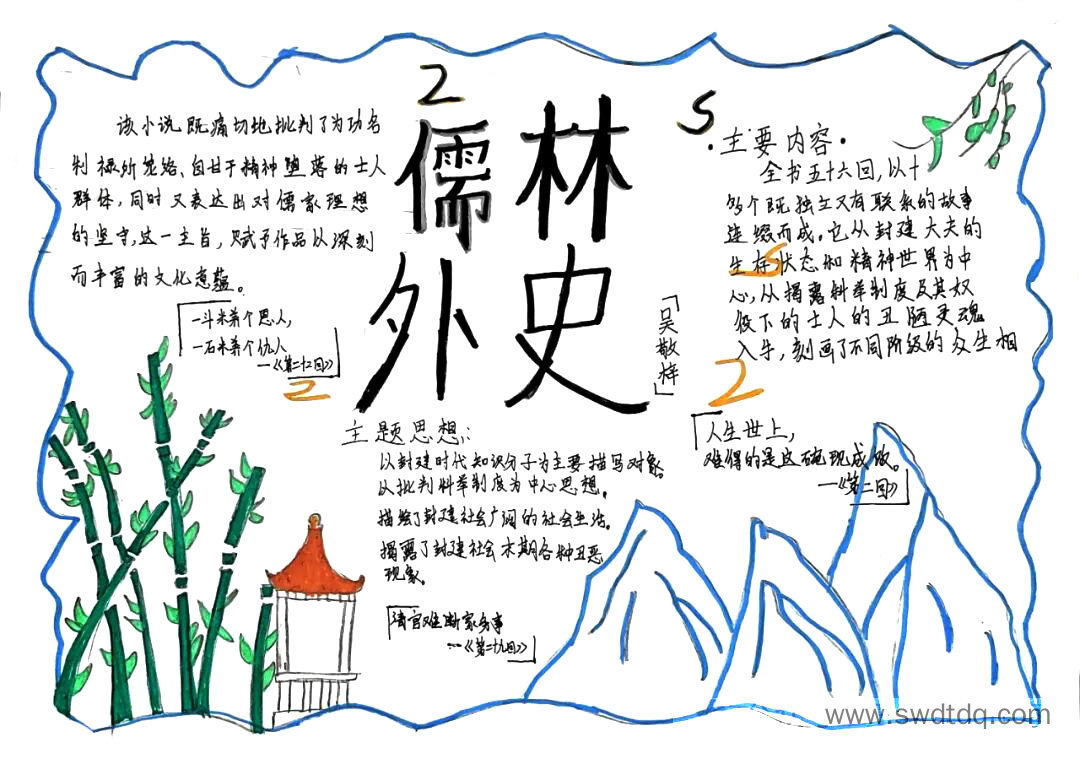 2
儒林
外史
「吴敬梓」
该小说既痛切地批判了为功名
利禄所笼络、自甘于精神堕落的士人
群体，同时又表达出对儒家理想
的坚守，这一主旨，赋予作品以深刻
而丰富的文化意蕴。
一斗米养个恩人，
一石米养个仇人
—《第二十二回》
2
S
·主要内容·
全书五十六回，以十
多个既独立又有联系的故事
连缀而成。它从封建大夫的
生存状态和精神世界为中
心，从揭露科举制度及其奴
役下的士人的丑陋灵魂
入手，刻画了不同阶级的众生相
S
2
人生世上，
难得的是这碗现成饭。
—《第二回》
主题思想：
以封建时代知识分子为主要描写对象。
以批判科举制度为中心思想。
描绘了封建社会广阔的社会生活。
揭露了封建社会末期各种丑恶
现象。
清官难断家务事
…《第二十九回》
www.swdtdq.com